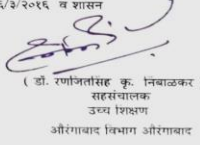 ६/३/२०१६ व शासन
( डॉ. रणजितसिंह कृ. निंबाळकर
सहसंचालक
उच्च शिक्षण
औरंगाबाद विभाग औरंगाबाद